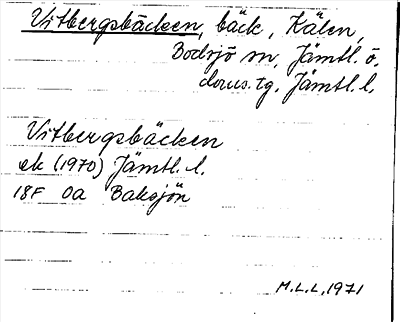 Vitbergsbäcken, bäck, Kälen,
Bodsjö sn, Jämtl. ö.
doms.tg, Jämtl. l.
Vitbergsbäcken
ek (1970) Jämtl. l.
18F 0a Baksjön
M.L.L. 1971